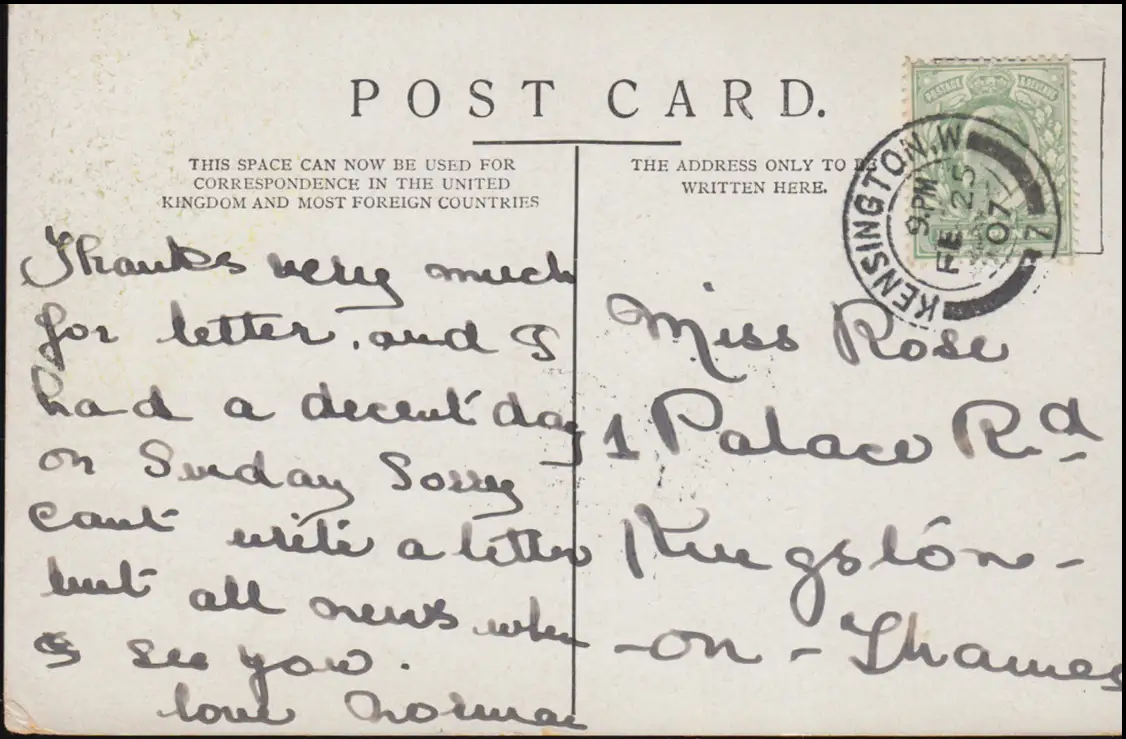 POST CARD.
THIS SPACE CAN NOW BE USED FOR
CORRESPONDENCE IN THE UNITED
KINGDOM AND MOST FOREIGN COUNTRIES
THE ADDRESS ONLY TO BE
WRITTEN HERE.
POSTAGE REVENUE
KENSINGTON. W
9. PM
FE 25
07
Thanks very much
for letter, and I
had a decent day
on Sunday Sorry
cant write a letter
but all news when
I see you.
love Norma
Miss Rose
1 Palace Rd
Kingston -
- on - Thames